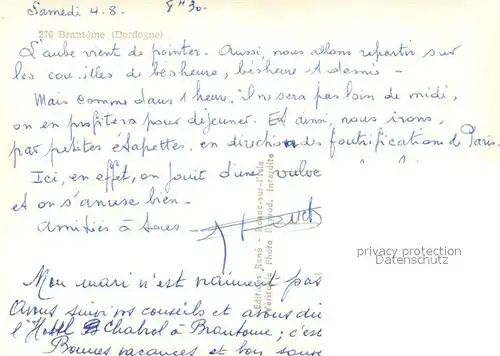 Samedi 4.8. 8H30.
276 Brantôme (Dordogne)
L'aube vient de pointer. Aussi, nous allons repartir sur
les cou..illes de bésheure, bésheure et demie -
Mais comme dans 1 heure, il ne sera pas loin de midi,
on en profitera pour déjeuner. Et ainsi, nous irons,
par petites étapettes, en direction des foutrifications de Paris.
Ici, en effet, on jouit d'une vulve
et on s'anuse bien -
Amitiés à tous -
Editions René - sur-l'Isle
Véritable Photo Interdite
privacy protection
Datenschutz
Mon mari n'est vraiment pas
Avons suivi vos conseils et avons
l'Hotel Chabrol à Brantome ; c'est
Bonnes vacances et bon